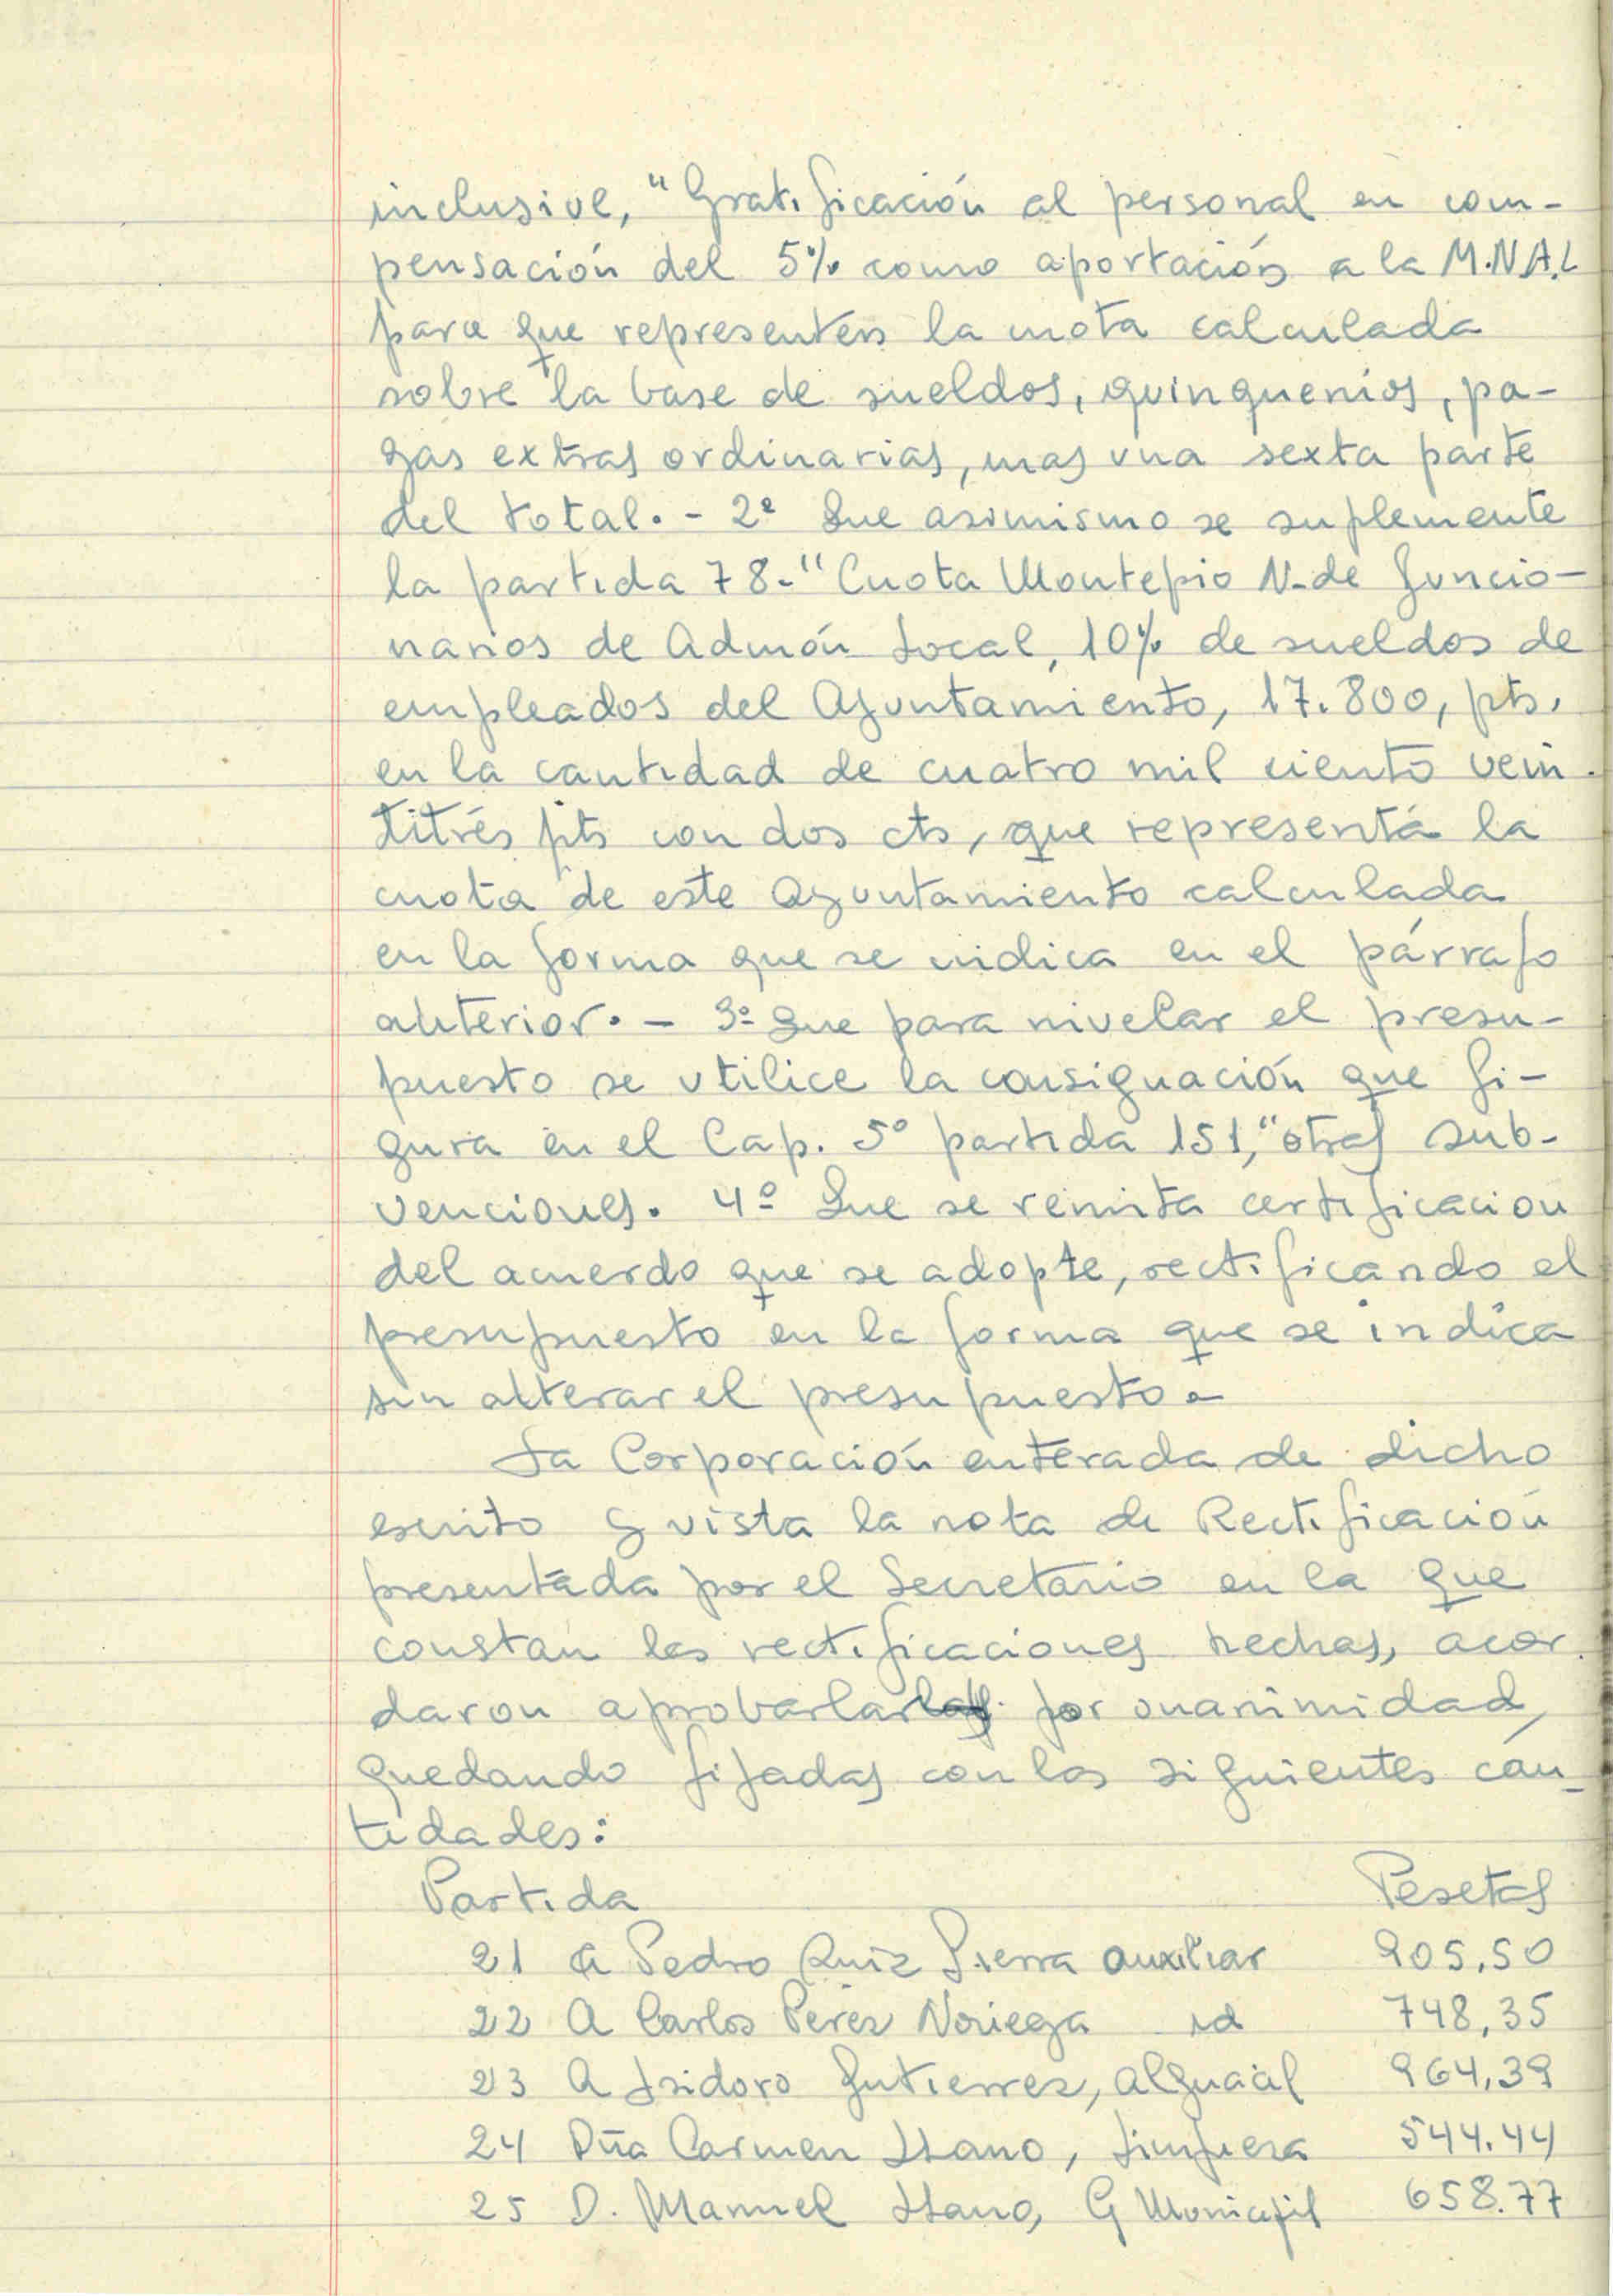 inclusive, "Gratificación al personal en com-
pensación del 5% como aportación a la M.N.A.L
para que representen la cuota calculada
sobre la base de sueldos, quinquenios, pa-
gas extras ordinarias, mas una sexta parte
del total. - 2º Que asimismo se suplemente
la partida 78-"Cuota Montepio N. de funcio-
narios de Admón Local, 10% de sueldos de
empleados del Ayuntamiento, 17.800, pts.
en la cantidad de cuatro mil ciento vein-
titrés pts con dos cts, que representa la
cuota de este Ayuntamiento calculada
en la forma que se indica en el párrafo
anterior. - 3º Que para nivelar el presu-
puesto se utilice la consignación que fi-
gura en el Cap. 5º partida 151, "otras sub-
venciones. 4º Que se remita certificacion
del acuerdo que se adopte, rectificando el
presupuesto en la forma que se indica
sin alterar el presupuesto.-
La Corporación enterada de dicho
escrito y vista la nota de Rectificación
presentada por el Secretario en la que
constan las rectificaciones hechas, acor-
daron aprobarlas por unanimidad,
quedando fijadas con las siguientes can-
tidades:
Partida Pesetas
21 A Pedro Ruiz Sierra auxiliar 905,50
22 A Carlos Perez Noriega id 748,35
23 A Isidoro Gutierrez, alguacil 964,39
24 Dña Carmen Llano, Limpieza 544.44
25 D. Manuel Llano, G Municipil 658.77